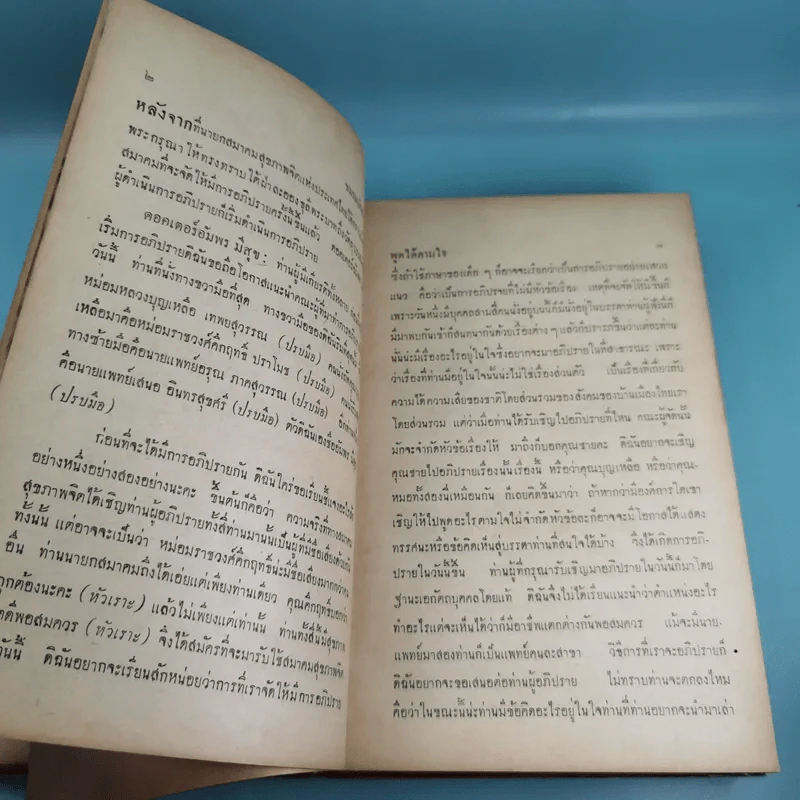 ๒
หลังจากที่นายกสมาคมสุขภาพจิตแห่งประเทศไทยได้
พระกรุณาให้ทรงทราบใต้ฝ่าละอองธุลีพระบาทถึงวัตถุ
สมาคมที่จะจัดให้มีการอภิปรายครั้งนี้ขึ้นแล้ว
ผู้ดำเนินการอภิปรายก็เริ่มดำเนินการอภิปราย
ดอคเตอร์อัมพร มีสุข: ท่านผู้มีเกียรติทั้งหลาย
เริ่มการอภิปรายดิฉันขอถือโอกาสแนะนำคณะผู้ที่มาทำการอภิ
วันนี้ ท่านที่นั่งทางขวามือที่สุด ทางขวามือของดิฉัน
หม่อมหลวงบุญเหลือ เทพยสุวรรณ (ปรบมือ)
เหลือมาคือหม่อมราชวงศ์คึกฤทธิ์ ปราโมช (ปรบมือ)
ทางซ้ายมือคือนายแพทย์อรุณ ภาคสุวรรณ (ปรบมือ)
คือนายแพทย์เสนอ อินทรสุขศรี (ปรบมือ) ตัวดิฉันเองชื่ออัมพร มีสุข
(ปรบมือ)
ก่อนที่จะได้มีการอภิปรายกัน ดิฉันใคร่ขอเรียนชี้แจงอะไรสัก
อย่างหนึ่งอย่างสองอย่างนะคะ ขั้นต้นก็คือว่า ความจริงที่ทางสมาคม
สุขภาพจิตได้เชิญท่านผู้อภิปรายทั้งสี่ท่านมานั้นเป็นผู้ที่มีชื่อเสียงด้วยกัน
ทั้งนั้น แต่อาจจะเป็นว่า หม่อมราชวงศ์คึกฤทธิ์น่ะมีชื่อเสียงมากกว่าคน
อื่น ท่านนายกสมาคมถึงได้เอ่ยแต่เพียงท่านเดียว คุณคึกฤทธิ์บอกว่า
ถูกต้องนะคะ (หัวเราะ) แล้วไม่เพียงแต่เท่านั้น ท่านทั้งสี่นี้มีสุขภาพ
จิตดีพอสมควร (หัวเราะ) จึงได้สมัครที่จะมารับใช้สมาคมสุขภาพจิต
วันนี้ ดิฉันอยากจะเรียนสักหน่อยว่าการที่เราจัดให้มีการอภิปราย
พูดได้ตามใจ
ซึ่งถ้าใช้ภาษาของเด็ก ๆ ก็อาจจะเรียกว่าเป็นการอภิปรายอย่าง
แนว คือว่าเป็นการอภิปรายที่ไม่มีหัวข้อเรื่อง เหตุที่จะจัดให้มีขึ้นก็
เพราะวันหนึ่งมีบุคคลสามสี่คนนั่งอยู่บนนี้ก็มีนั่งอยู่ในบรรดาท่านผู้ฟังนี้ก็
มีมาพบกันเข้าก็สนทนากันด้วยเรื่องต่าง ๆ แล้วก็ปรารภขึ้นว่าแต่ละท่าน
นั้นน่ะมีเรื่องอะไรอยู่ในใจซึ่งอยากจะมาอภิปรายในที่สาธารณะ เพราะ
ว่าเรื่องที่ท่านมีอยู่ในใจนั้นน่ะไม่ใช่เรื่องส่วนตัว เป็นเรื่องที่เกี่ยวกับ
ความได้ความเสียของชาติโดยส่วนรวมของสังคมของบ้านเมืองไทยเรา
โดยส่วนรวม แต่ว่าเมื่อท่านได้รับเชิญไปอภิปรายที่ไหน คณะผู้จัดนั้น
มักจะจำกัดหัวข้อเรื่องให้ มาถึงก็บอกคุณชายคะ ดิฉันอยากจะเชิญ
คุณชายไปอภิปรายเรื่องนั้นเรื่องนี้ หรือว่าคุณบุญเหลือ หรือว่าคุณ-
หมอทั้งสองนี่เหมือนกัน ก็เลยคิดขึ้นมาว่า ถ้าหากว่ามีองค์การใดเขา
เชิญให้ไปพูดอะไรตามใจไม่จำกัดหัวข้อละก็อาจจะมีโอกาสได้แสดง
ทรรศนะหรือข้อคิดเห็นสู่บรรดาท่านที่สนใจได้บ้าง จึงได้เกิดการอภิ-
ปรายในวันนี้ขึ้น ท่านผู้ที่กรุณารับเชิญมาอภิปรายในวันนี้ก็มาโดย
ฐานะเอกัตถบุคคลโดยแท้ ดิฉันจึงไม่ได้เรียนแนะนำว่าตำแหน่งอะไร
ทำอะไรแต่จะเห็นได้ว่าก็มีอาชีพแตกต่างกันพอสมควร แม้จะมีนาย-
แพทย์มาสองท่านก็เป็นแพทย์คนละสาขา วิธีการที่เราจะอภิปรายก็
ดิฉันอยากจะขอเสนอต่อท่านผู้อภิปราย ไม่ทราบท่านจะตกลงไหม
คือว่าในขณะนี้น่ะท่านมีข้อคิดอะไรอยู่ในใจท่านที่ท่านอยากจะนำมาเล่า